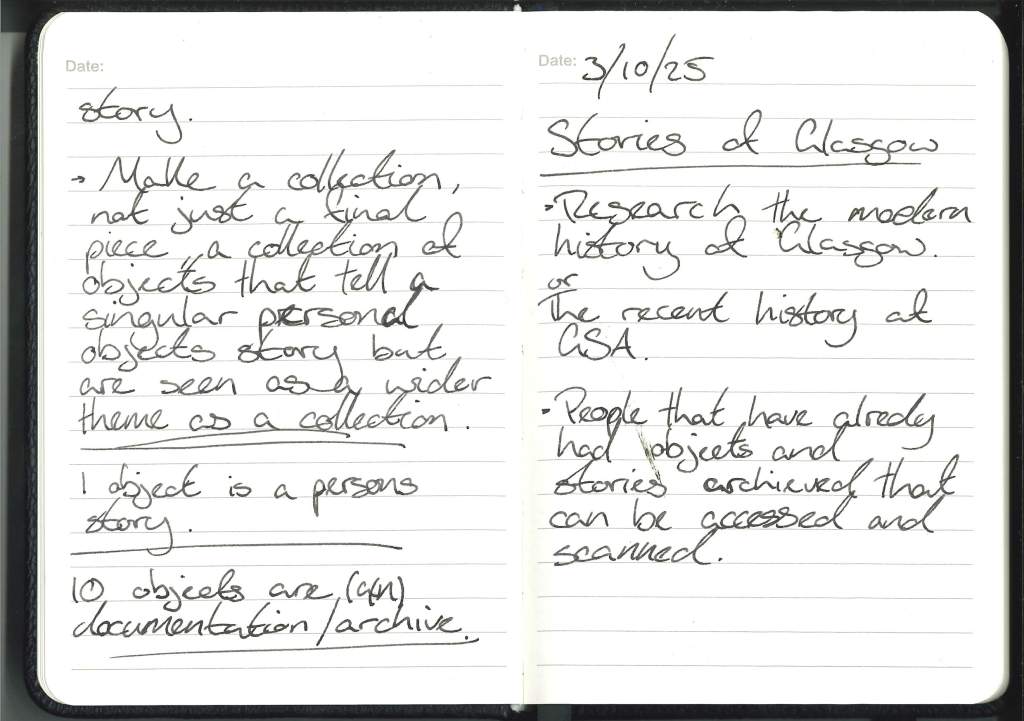 Date:
story.
→ Make a collection,
not just a final
piece, a collection of
objects that tell a
singular personal
objects story but
are seen as a wider
theme as a collection.
1 object is a persons
story.
10 objects are (an)
documentation/archive.
Date: 3/10/25
Stories of Glasgow
• Research the modern
history of Glasgow.
or
The recent history at
GSA.
• People that have already
had objects and
stories archieved that
can be accessed and
scanned.